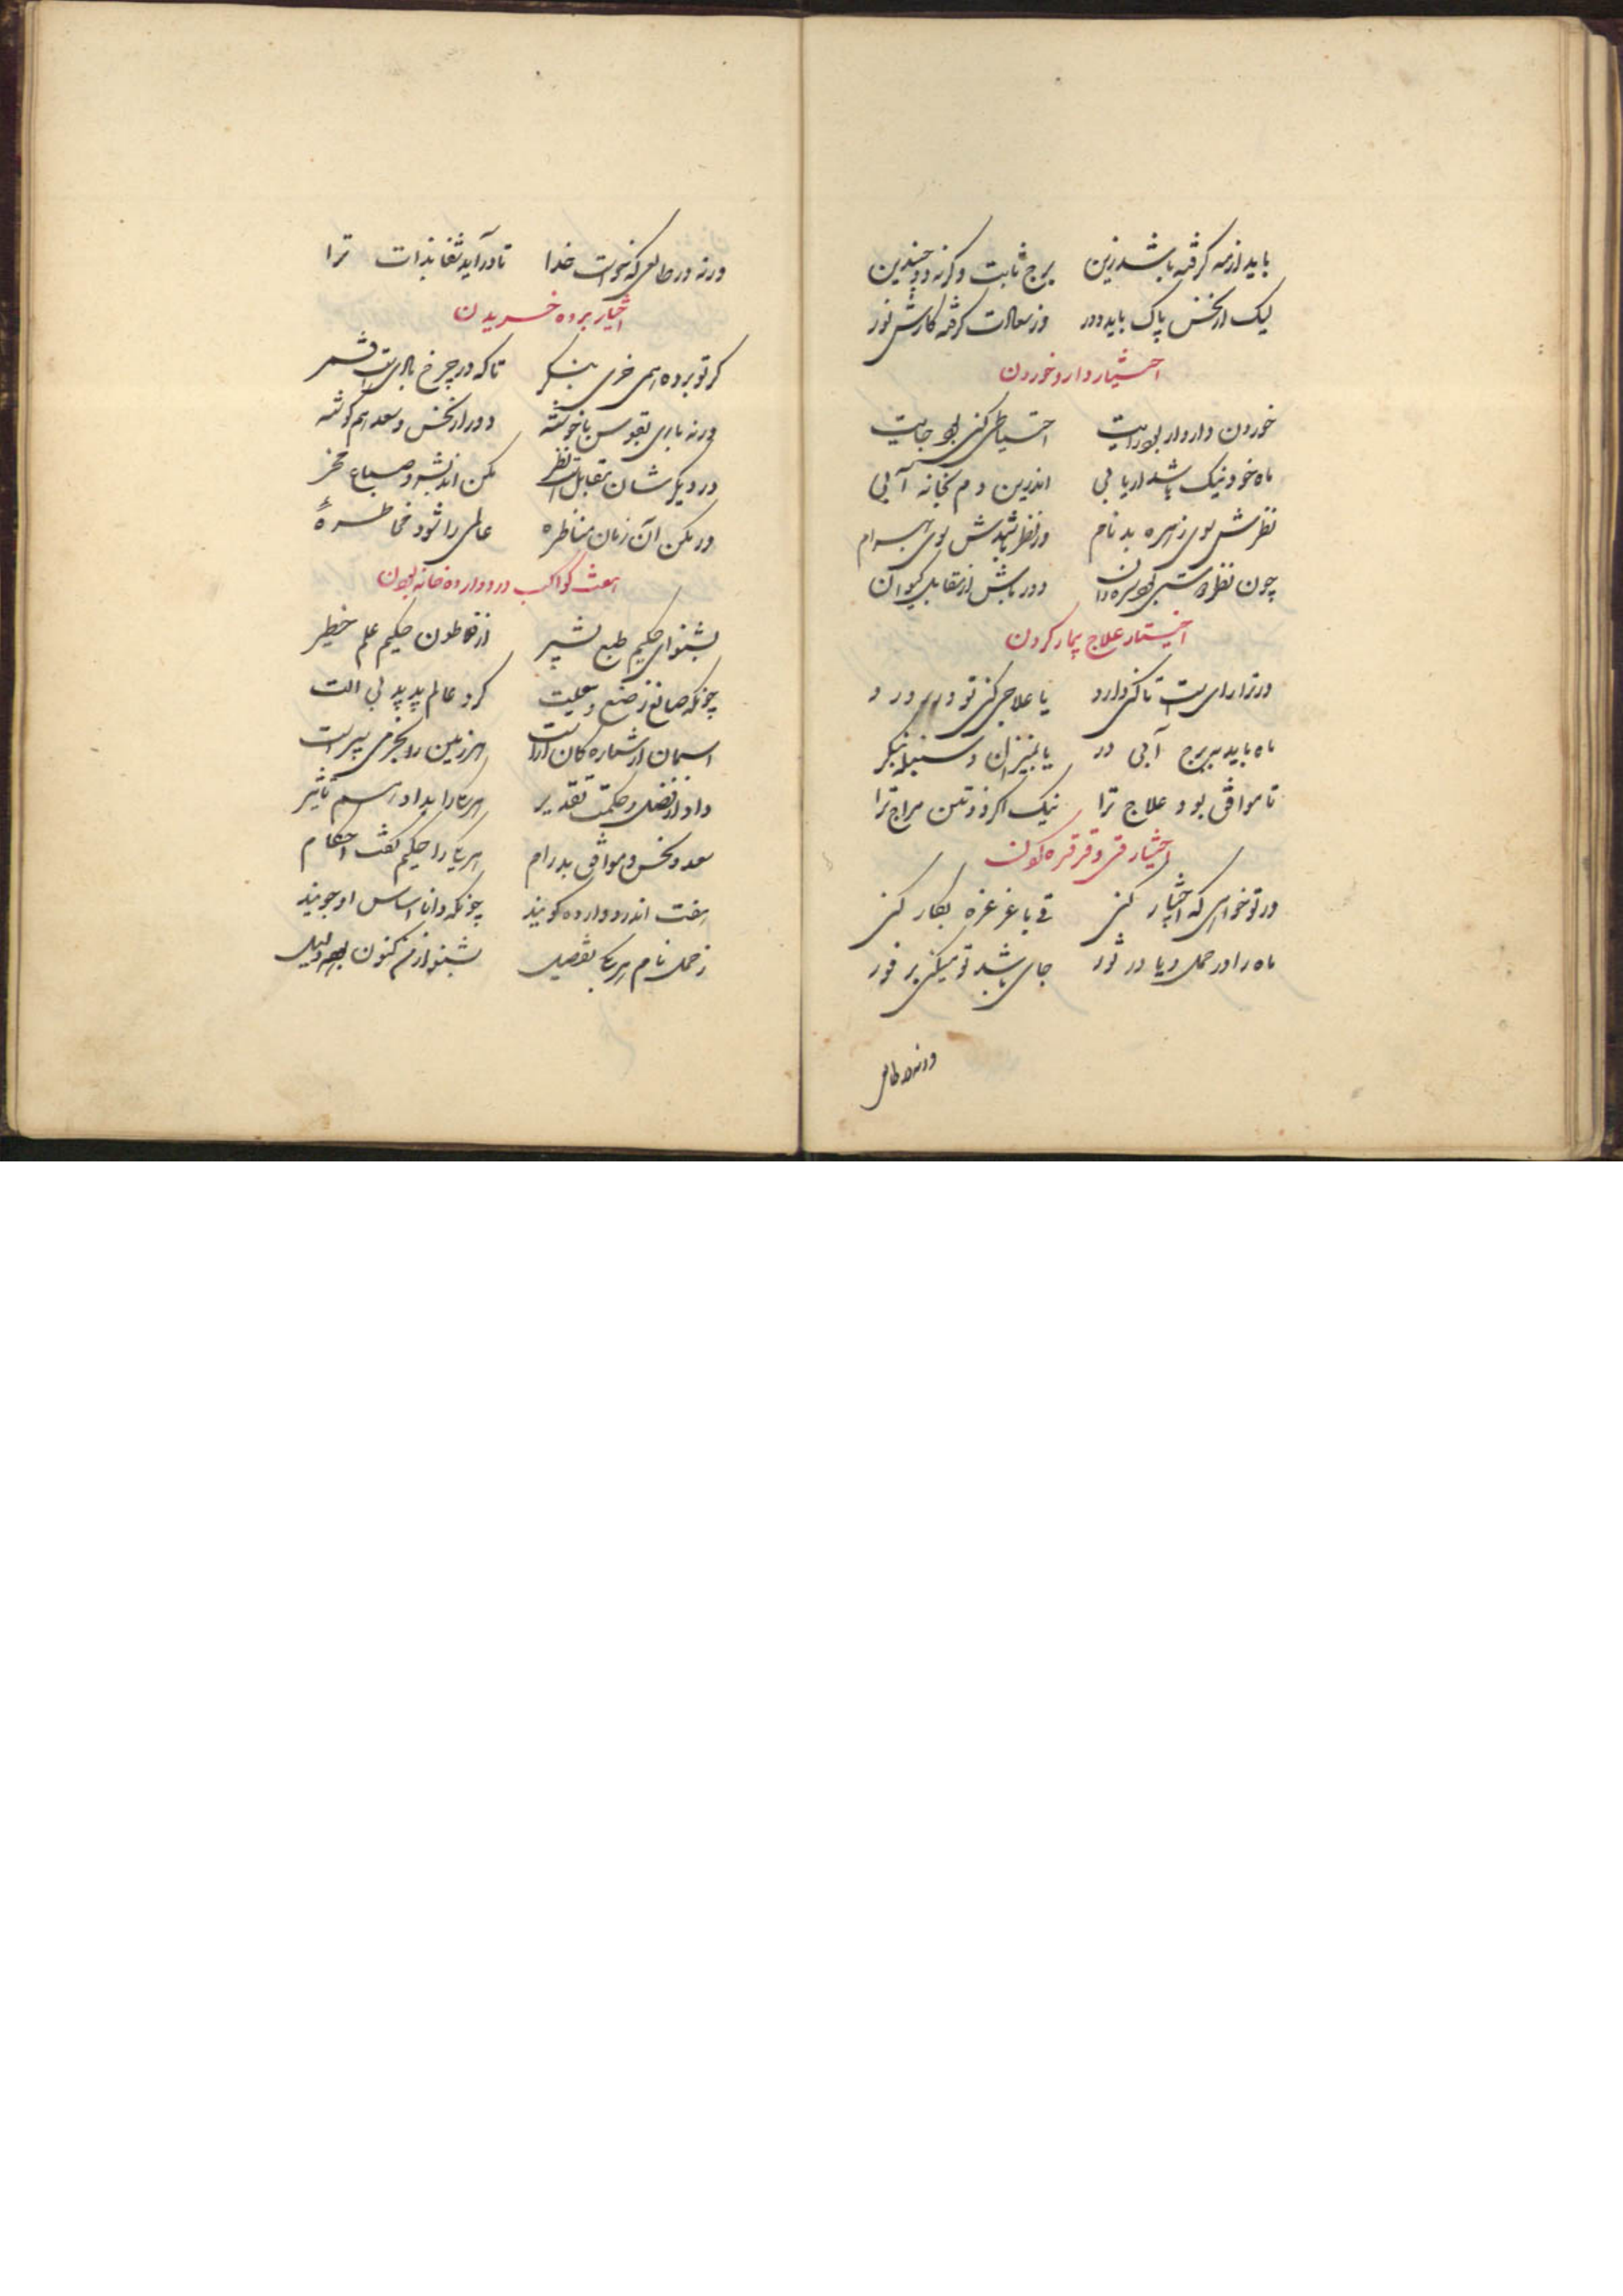 باید از مه گرفته باشد زین برج ثابت وگرنه دو جسدین
لیک از نحس پاک باید دور وز سعادت گرفته کارش نور
اختیار دارو خوردن
خوردن دارو ار بود رایت احتیاطی کنی بهر جایت
ماه خود نیک باشد ار یابی اندرین دم بخانه آبی
نظرش سوی زهره بد نام ور نظر باشدش سوی بهرام
چون نظر دور باش از مقابل کیوان
اختیار علاج بیمار کردن
ور ترا رای است تا کنی دارو یا علاجی کنی تو در
ماه باید ببرج آبی در یا بمیزان و سنبله بنگر
تا موافق بود علاج ترا نیک مزاج ترا
اختیار قی و غرغره کردن
ور تو خواهی که اختیار کنی قی با غرغره بکار کنی
ماه را در حمل و یا در ثور جای باشد تو میکنی بر فور
ورنه در طالعی
ورنه در طالعی که خواست خدا تا درآید شفا بذات ترا
اختیار برده خریدن
گر تو برده همی خری بنگر تا که در چرخ بادی است قمر
ورنه باری بقوس یا خوشه دور از نحس و سعد هم گوشه
در دیگرشان مقابل است نظر مکن اندیشه و متاع مخر
ور مکن آن زمان مناظره عالمی را شود مخاطره
هفت کواکب در دوازده خانه بودن
بشنو ای حکیم طبع بشیر از فلاطون حکیم علم خطیر
چونکه صانع ز صنع کرد عالم پدید بی الت
اسمان از ستاره کان اراست هم زمین را به پیراست
داد از فضل و حکمت تقدیر هر یکی را بداد رسم تاثیر
سعد و نحس و موافق بدرام هر یکی را حکیم گفت احکام
هفت اندر دوازده گویند چونکه دانا اساس او جویند
ز حمل نام هر یکی بتفصیل بشنو از من کنون بهر دلیل